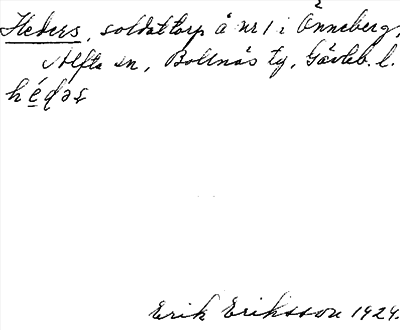 Heders, soldattorp å nr 1 i Änneberg,
Alfta sn, Bollnäs tg, Gävleb. l.
hédəs
Erik Eriksson 1924.